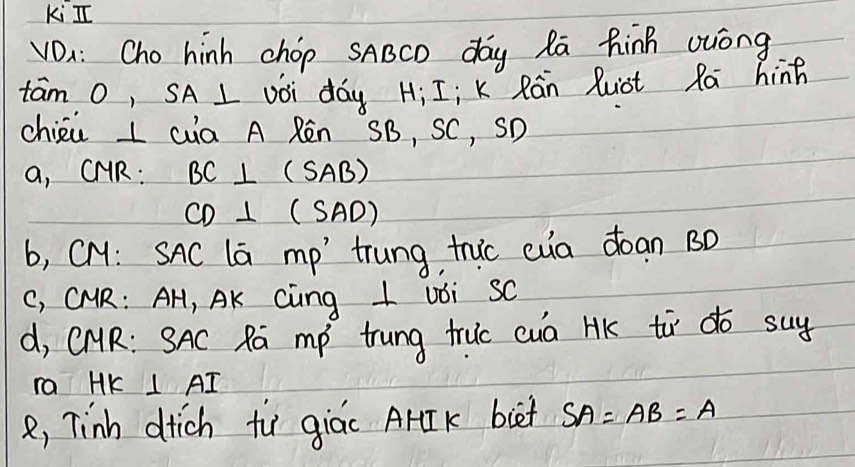 Kì II
VD1: Cho hình chóp SABCD đáy là hình vuông
tâm O, SA ⊥ với đáy H; I; K lần lượt là hình
chiếu ⊥ của A lên SB, SC, SD
a, CMR: BC ⊥ (SAB)
CD ⊥ (SAD)
b, CM: SAC là mp' trung trực của đoạn BD
c, CMR: AH, AK cùng ⊥ với SC
d, CMR: SAC là mp' trung trực của HK từ đó suy
ra HK ⊥ AI
e, Tính dtích tứ giác AHIK biết SA = AB = A